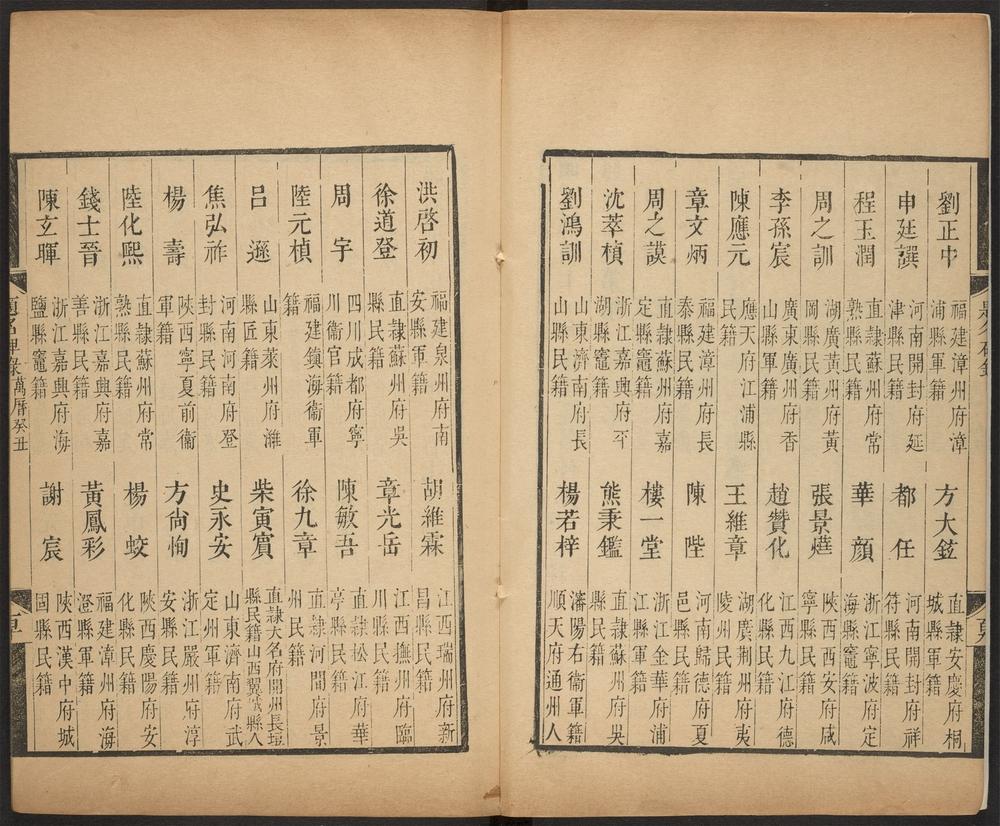 劉正中 福建漳州府漳浦縣軍籍 方大鉉 直隸安慶府桐城縣軍籍
申廷譔 河南開封府延津縣民籍 都任 河南開封府祥符縣民籍
程玉潤 直隸蘇州府常熟縣民籍 華顏 浙江寧波府定海縣竈籍
周之訓 湖廣黃州府黃岡縣民籍 張景𤏪 陝西西安府咸寧縣民籍
李孫宸 廣東廣州府香山縣軍籍 趙贊化 江西九江府德化縣民籍
陳應元 應天府江浦縣民籍 王維章 湖廣荆州府夷陵州民籍
章文炳 福建漳州府長泰縣民籍 陳陛 河南歸德府夏邑縣民籍
周之謨 直隸蘇州府嘉定縣竈籍 樓一堂 浙江金華府浦江縣民籍
沈萃楨 浙江嘉興府平湖縣竈籍 熊秉鑑 直隸蘇州府吳縣民籍
劉鴻訓 山東濟南府長山縣民籍 楊若梓 瀋陽右衞軍籍順天府通州人
洪啓初 福建泉州府南安縣軍籍 胡維霖 江西瑞州府新昌縣民籍
徐道登 直隸蘇州府吳縣民籍 章光岳 江西撫州府臨川縣民籍
周宇 四川成都府寧川衞官籍 陳敏吾 直隸松江府華亭縣民籍
陸元楨 福建鎮海衞軍籍 徐九章 直隸河間府景州民籍
呂遜 山東萊州府濰縣匠籍 柴寅賓 直隸大名府開州長垣縣民籍山西翼城縣人
焦弘祚 河南河南府登封縣民籍 史永安 山東濟南府武定州軍籍
楊壽 陝西寧夏前衞軍籍 方尙恂 浙江嚴州府淳安縣民籍
陸化熙 直隸蘇州府常熟縣民籍 楊蛟 陝西慶陽府安化縣民籍
錢士晉 浙江嘉興府嘉善縣民籍 黃鳳彩 福建漳州府海澄縣軍籍
陳玄暉 浙江嘉興府海鹽縣竈籍 謝宸 陝西漢中府城固縣民籍
題名碑錄 萬曆癸丑